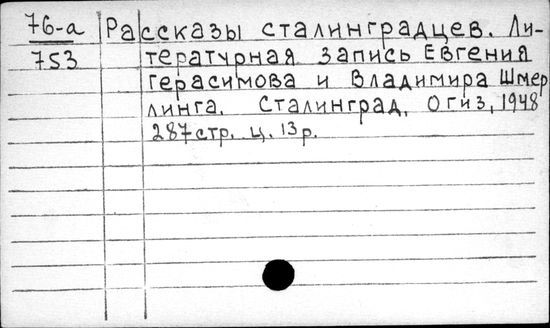 76-а Рассказы сталинградцев. Ли-
753 тературная запись Евгения
Герасимова и Владимира Шмер
линга. Сталинград, Огиз, 1948
287 стр. ц. 13 р.